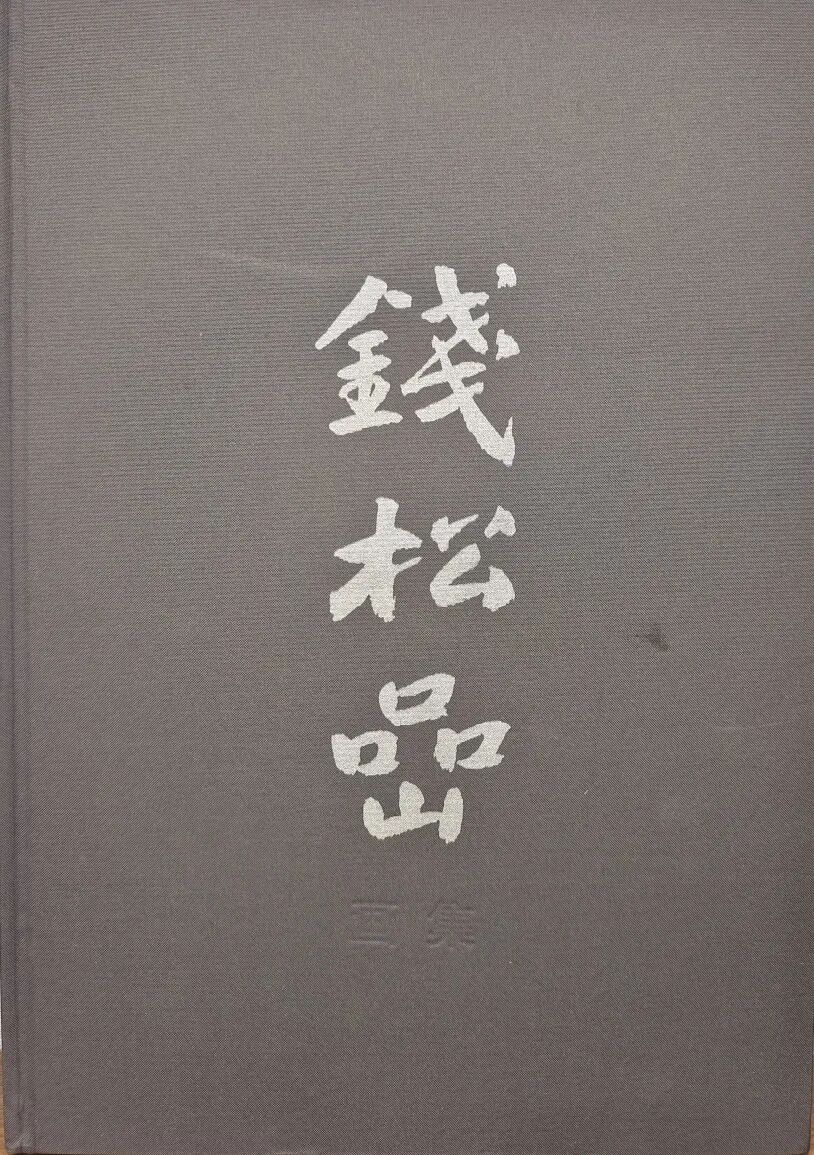 錢松喦
画集